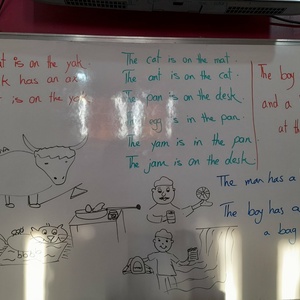 t is on the yak.
k has an ax
is on the yak.
The cat is on the mat.
The ant is on the cat.
The pan is on the desk.
The egg is in the pan.
The yam is in the pan
The jam is on the desk
The boy
and a
at th
The man has a
The boy has a
a bag